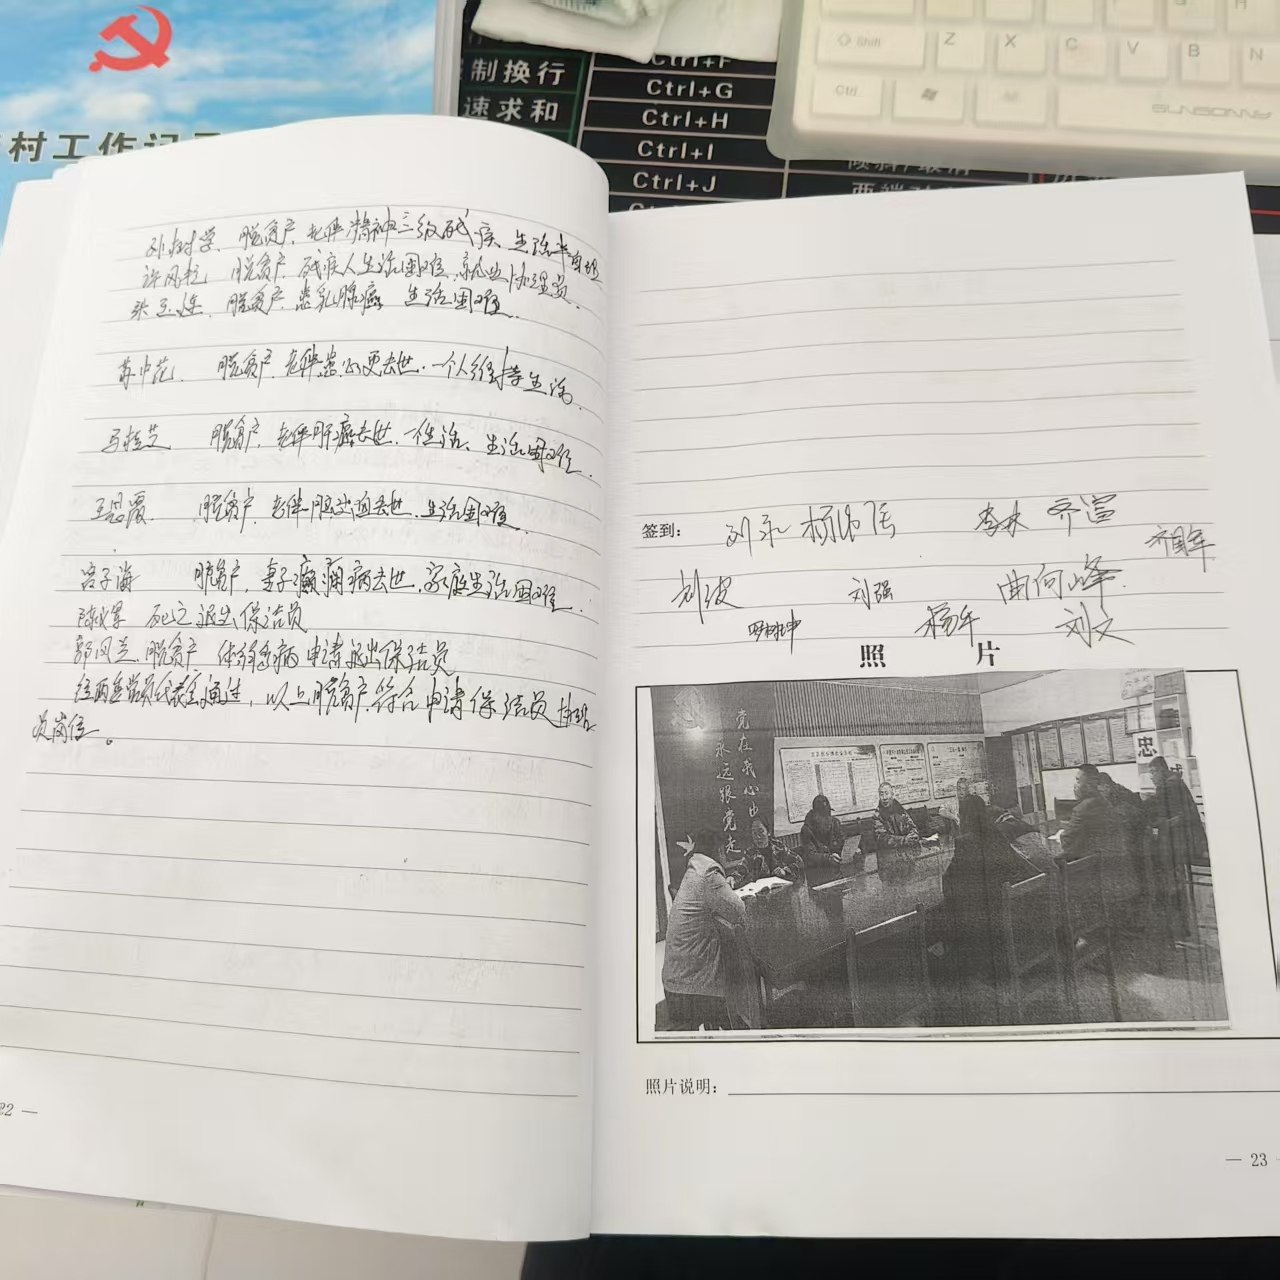 村工作记录
制换行
速求和
Ctrl+F
Ctrl+G
Ctrl+H
Ctrl+I
Ctrl+J
Shift
Z X C V B N
Ctrl
SUNSONNY
孙树学、脱贫户、老伴精神三级残疾、生活半自理
许风 脱贫户、残疾人生活困难、就业协理员.
张玉 脱贫户、患乳腺癌 生活困难.
脱贫户、老伴患心 去世.一个人维持生活.
马桂芝 脱贫户、老伴肝癌去世. 生活、生活困难.
王恩霞. 脱贫户、老伴脑出血去世.生活困难.
宫子海 脱贫户、妻子癫痫病去世.家庭生活困难.
死亡退出保洁员
郭风兰.脱贫户 体弱多病 申请退出保洁员.
经两委党员代表会通过,以上脱贫户.符合申请保洁员
员岗位。
22 —
签到:
刘永 李林 齐
刘波 刘强 曲向峰
杨军 刘文
照 片
党在我心中
永远跟党走
忠
诚
照片说明:
— 23